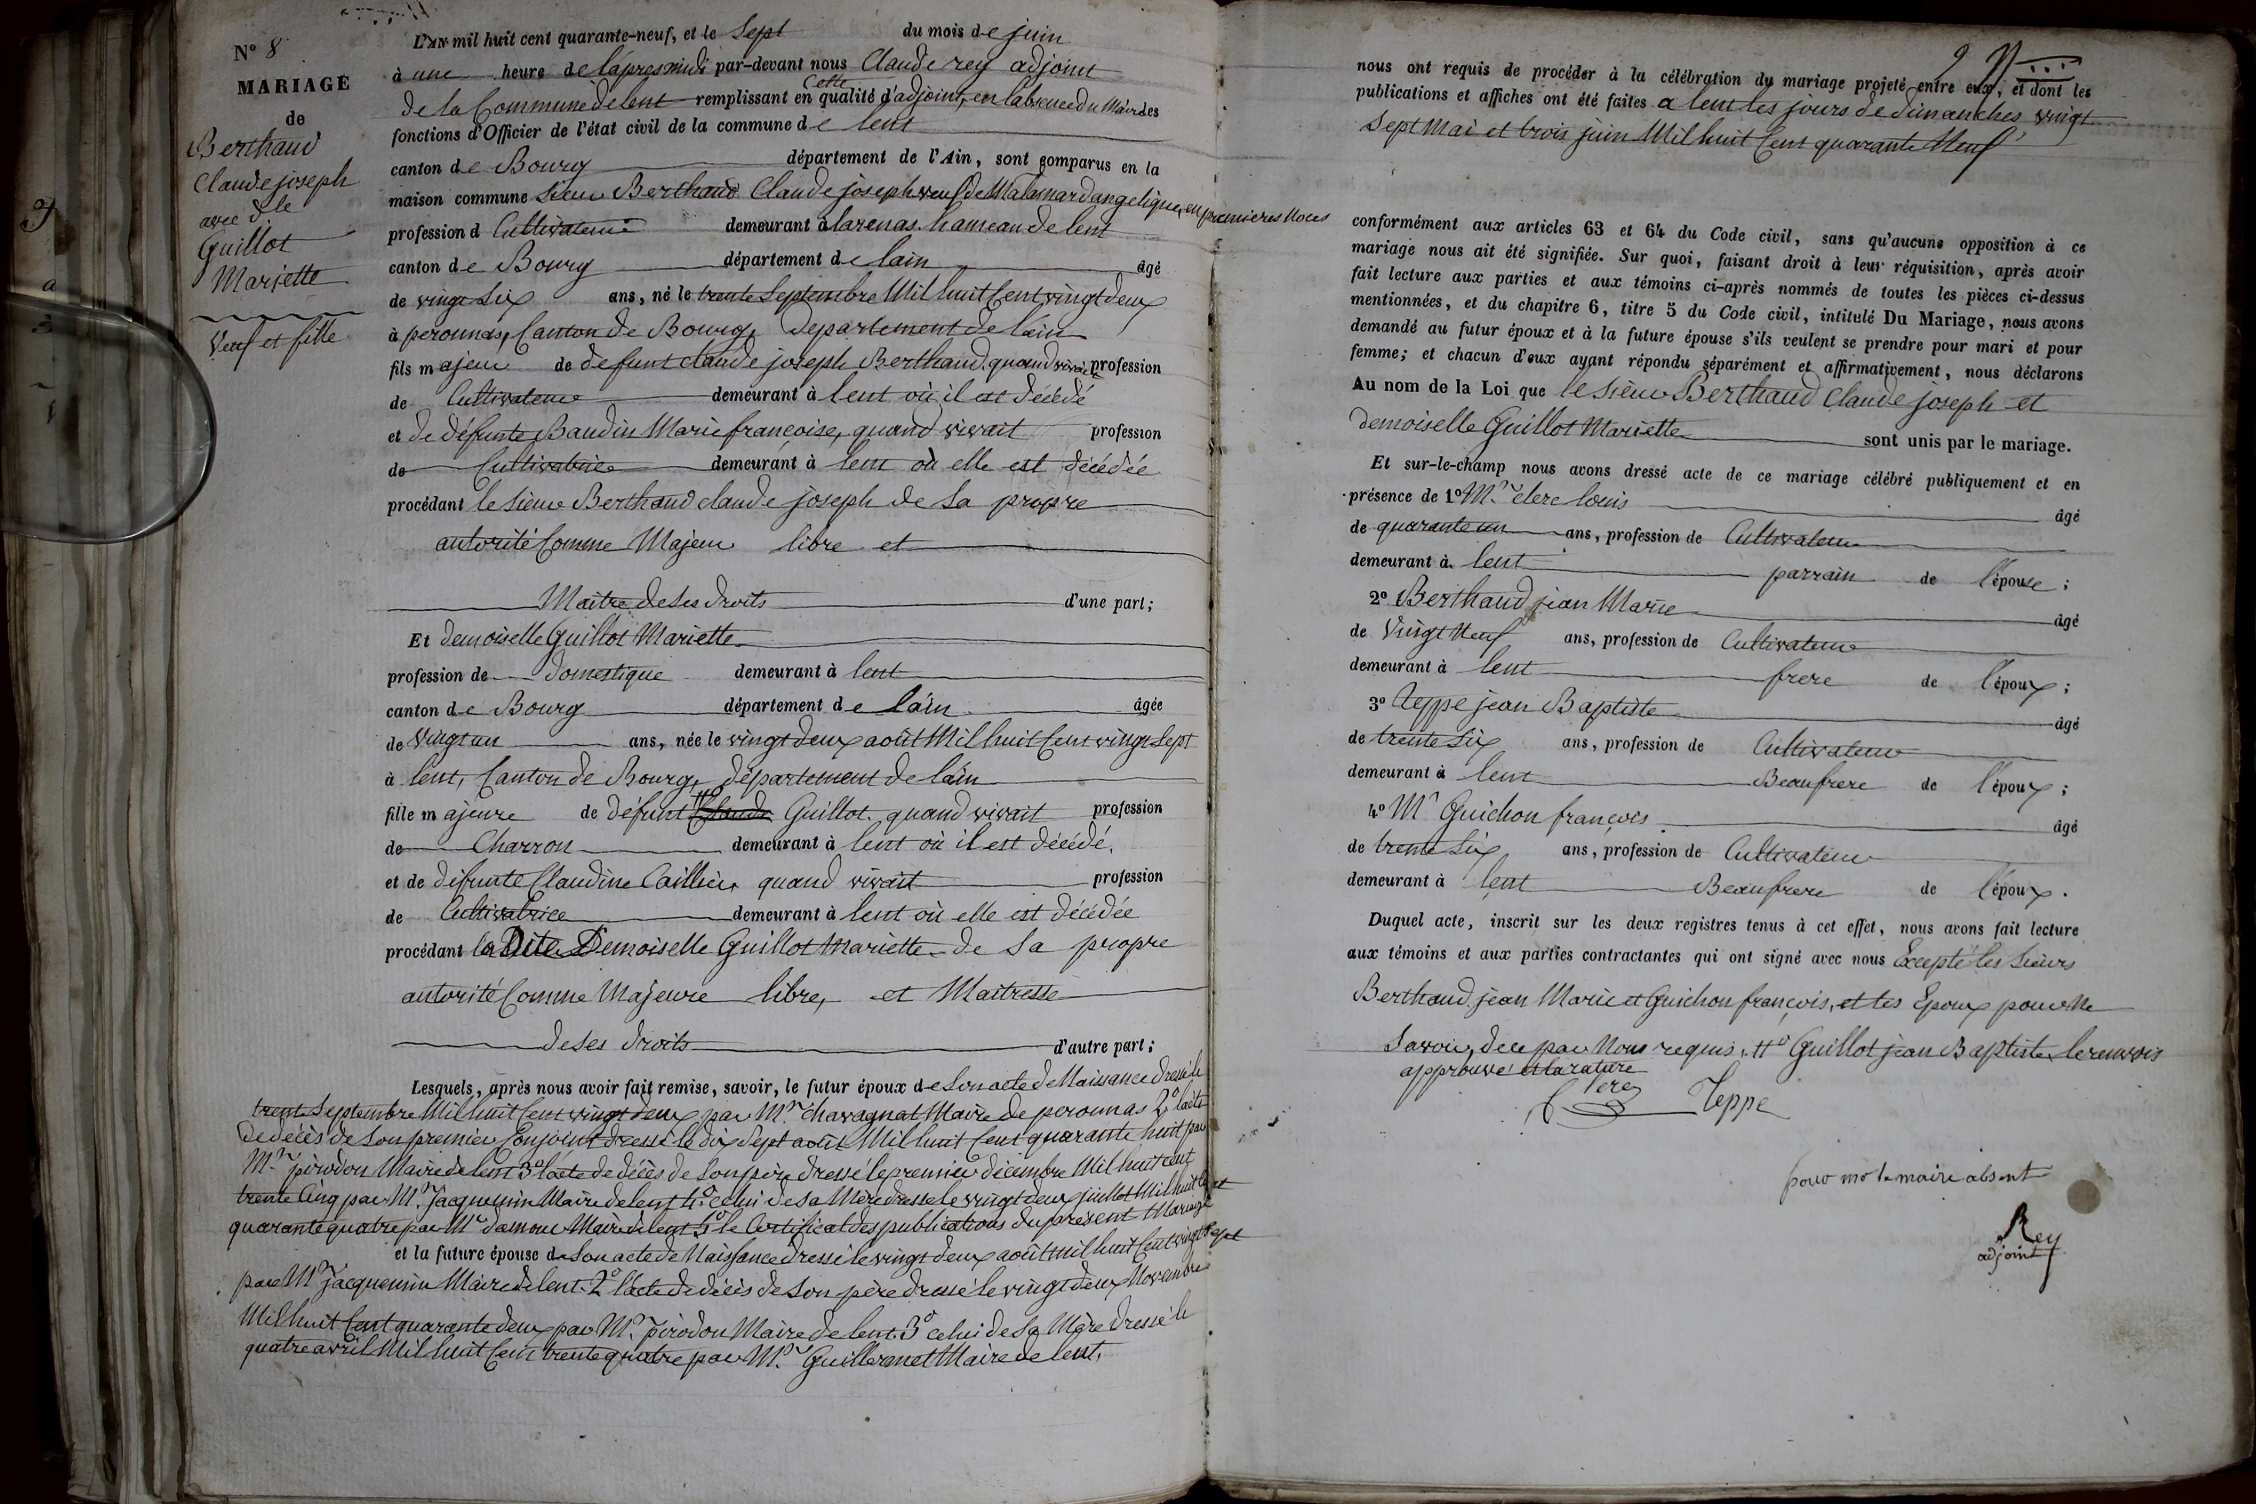 N° 8
MARIAGE
de
Berthaud
Claude joseph
avec dlle
Guillot
Mariette
Veuf et fille
L'AN mil huit cent quarante-neuf, et le Sept du mois de juin
à une heure de l'apres midi par-devant nous Claude rey adjoint
de la Commune de lent remplissant en cette qualité d'adjoint, en l'absence du Maire les
fonctions d'Officier de l'état civil de la commune de lent
canton de Bourg département de l'Ain, sont comparus en la
maison commune Sieur Berthaud Claude joseph veuf de Malamard angelique, en premieres Noces
profession d Cultivateur demeurant à larenas hameau de lent
canton de Bourg département de lain âgé
de vingt Six ans, né le trente Septembre Mil huit Cent vingt deux
à peronnas, Canton de Bourg, Departement de lain
fils majeur de defunt claude joseph Berthaud quand vivait profession
de Cultivateur demeurant à lent où il est décédé
et de défunte Baudin Marie francoise, quand vivait profession
de Cultivatrice demeurant à lent où elle est décédée
procédant le Sieur Berthaud claude joseph de Sa propre
autorité Comme Majeur libre et
Maitre de Ses droits d'une part;
Et demoiselle Guillot Mariette
profession de domestique demeurant à lent
canton de Bourg département de lain âgée
de Vingt un ans, née le vingt deux août Mil huit Cent vingt Sept
à lent, Canton de Bourg, département de lain
fille majeure de défunt Claude Guillot quand vivait profession
de Charron demeurant à lent où il est décédé.
et de défunte Claudine Caillier, quand vivait profession
de Cultivatrice demeurant à lent où elle est décédée
procédant la Dite Demoiselle Guillot Mariette de Sa propre
autorité Comme Majeure libre, et Maitresse
de Ses droits d'autre part;
Lesquels, après nous avoir fait remise, savoir, le futur époux de Son acte de Naissance dressé le
trente Septembre Mil huit Cent vingt deux par Mr Chavagnat Maire de peronnas 2° l'acte
de décès de Son premier Conjoint dressé le dix Sept août Mil huit Cent quarante huit par
Mr pirodon Maire de lent 3° l'acte de décès de Son père dressé le premier décembre Mil huit cent
trente Cinq par Mr Jacquemin Maire de lent 4° celui de Sa Mère dressé le vingt deux juillet Mil huit Cent
quarante quatre par Mr damour Maire de lent 5° le Certificat des publications du présent Mariage
et la future épouse de Son acte de Naissance dressé le vingt deux août mil huit Cent vingt Sept
par Mr Jacquemin Maire de lent. 2° l'acte de décès de Son père dressé le vingt deux Novembre
Mil huit Cent quarante deux par Mr pirodon Maire de lent. 3° celui de Sa Mère dressé le
quatre avril Mil huit Cent trente quatre par Mr Guillermet Maire de lent.
nous ont requis de procéder à la célébration du mariage projeté entre eux, et dont les
publications et affiches ont été faites a lent les jours de dimanches vingt
Sept Mai et trois juin Mil huit Cent quarante Neuf
conformément aux articles 63 et 64 du Code civil, sans qu'aucune opposition à ce
mariage nous ait été signifiée. Sur quoi, faisant droit à leur réquisition, après avoir
fait lecture aux parties et aux témoins ci-après nommés de toutes les pièces ci-dessus
mentionnées, et du chapitre 6, titre 5 du Code civil, intitulé Du Mariage, nous avons
demandé au futur époux et à la future épouse s'ils veulent se prendre pour mari et pour
femme; et chacun d'eux ayant répondu séparément et affirmativement, nous déclarons
Au nom de la Loi que le Sieur Berthaud Claude joseph et
demoiselle Guillot Mariette sont unis par le mariage.
Et sur-le-champ nous avons dressé acte de ce mariage célébré publiquement et en
présence de 1° Mr clere louis âgé
de quarante un ans, profession de Cultivateur
demeurant à lent parrain de l'épouse;
2° Berthaud jean Marie âgé
de Vingt Neuf ans, profession de Cultivateur
demeurant à lent frere de l'époux;
3° Teppe jean Baptiste âgé
de trente Six ans, profession de Cultivateur
demeurant à lent Beaufrere de l'époux;
4° Mr Guichon françois âgé
de trente Six ans, profession de Cultivateur
demeurant à lent Beaufrere de l'époux.
Duquel acte, inscrit sur les deux registres tenus à cet effet, nous avons fait lecture
aux témoins et aux parties contractantes qui ont signé avec nous Excepté les Sieurs
Berthaud jean Marie et Guichon françois, et les Epoux pour Ne
Savoir, de ce par Nous requis. Guillot jean Baptiste le renvois
approuvé et la rature
Clere Teppe
pour mr le maire absent
Rey
adjoint